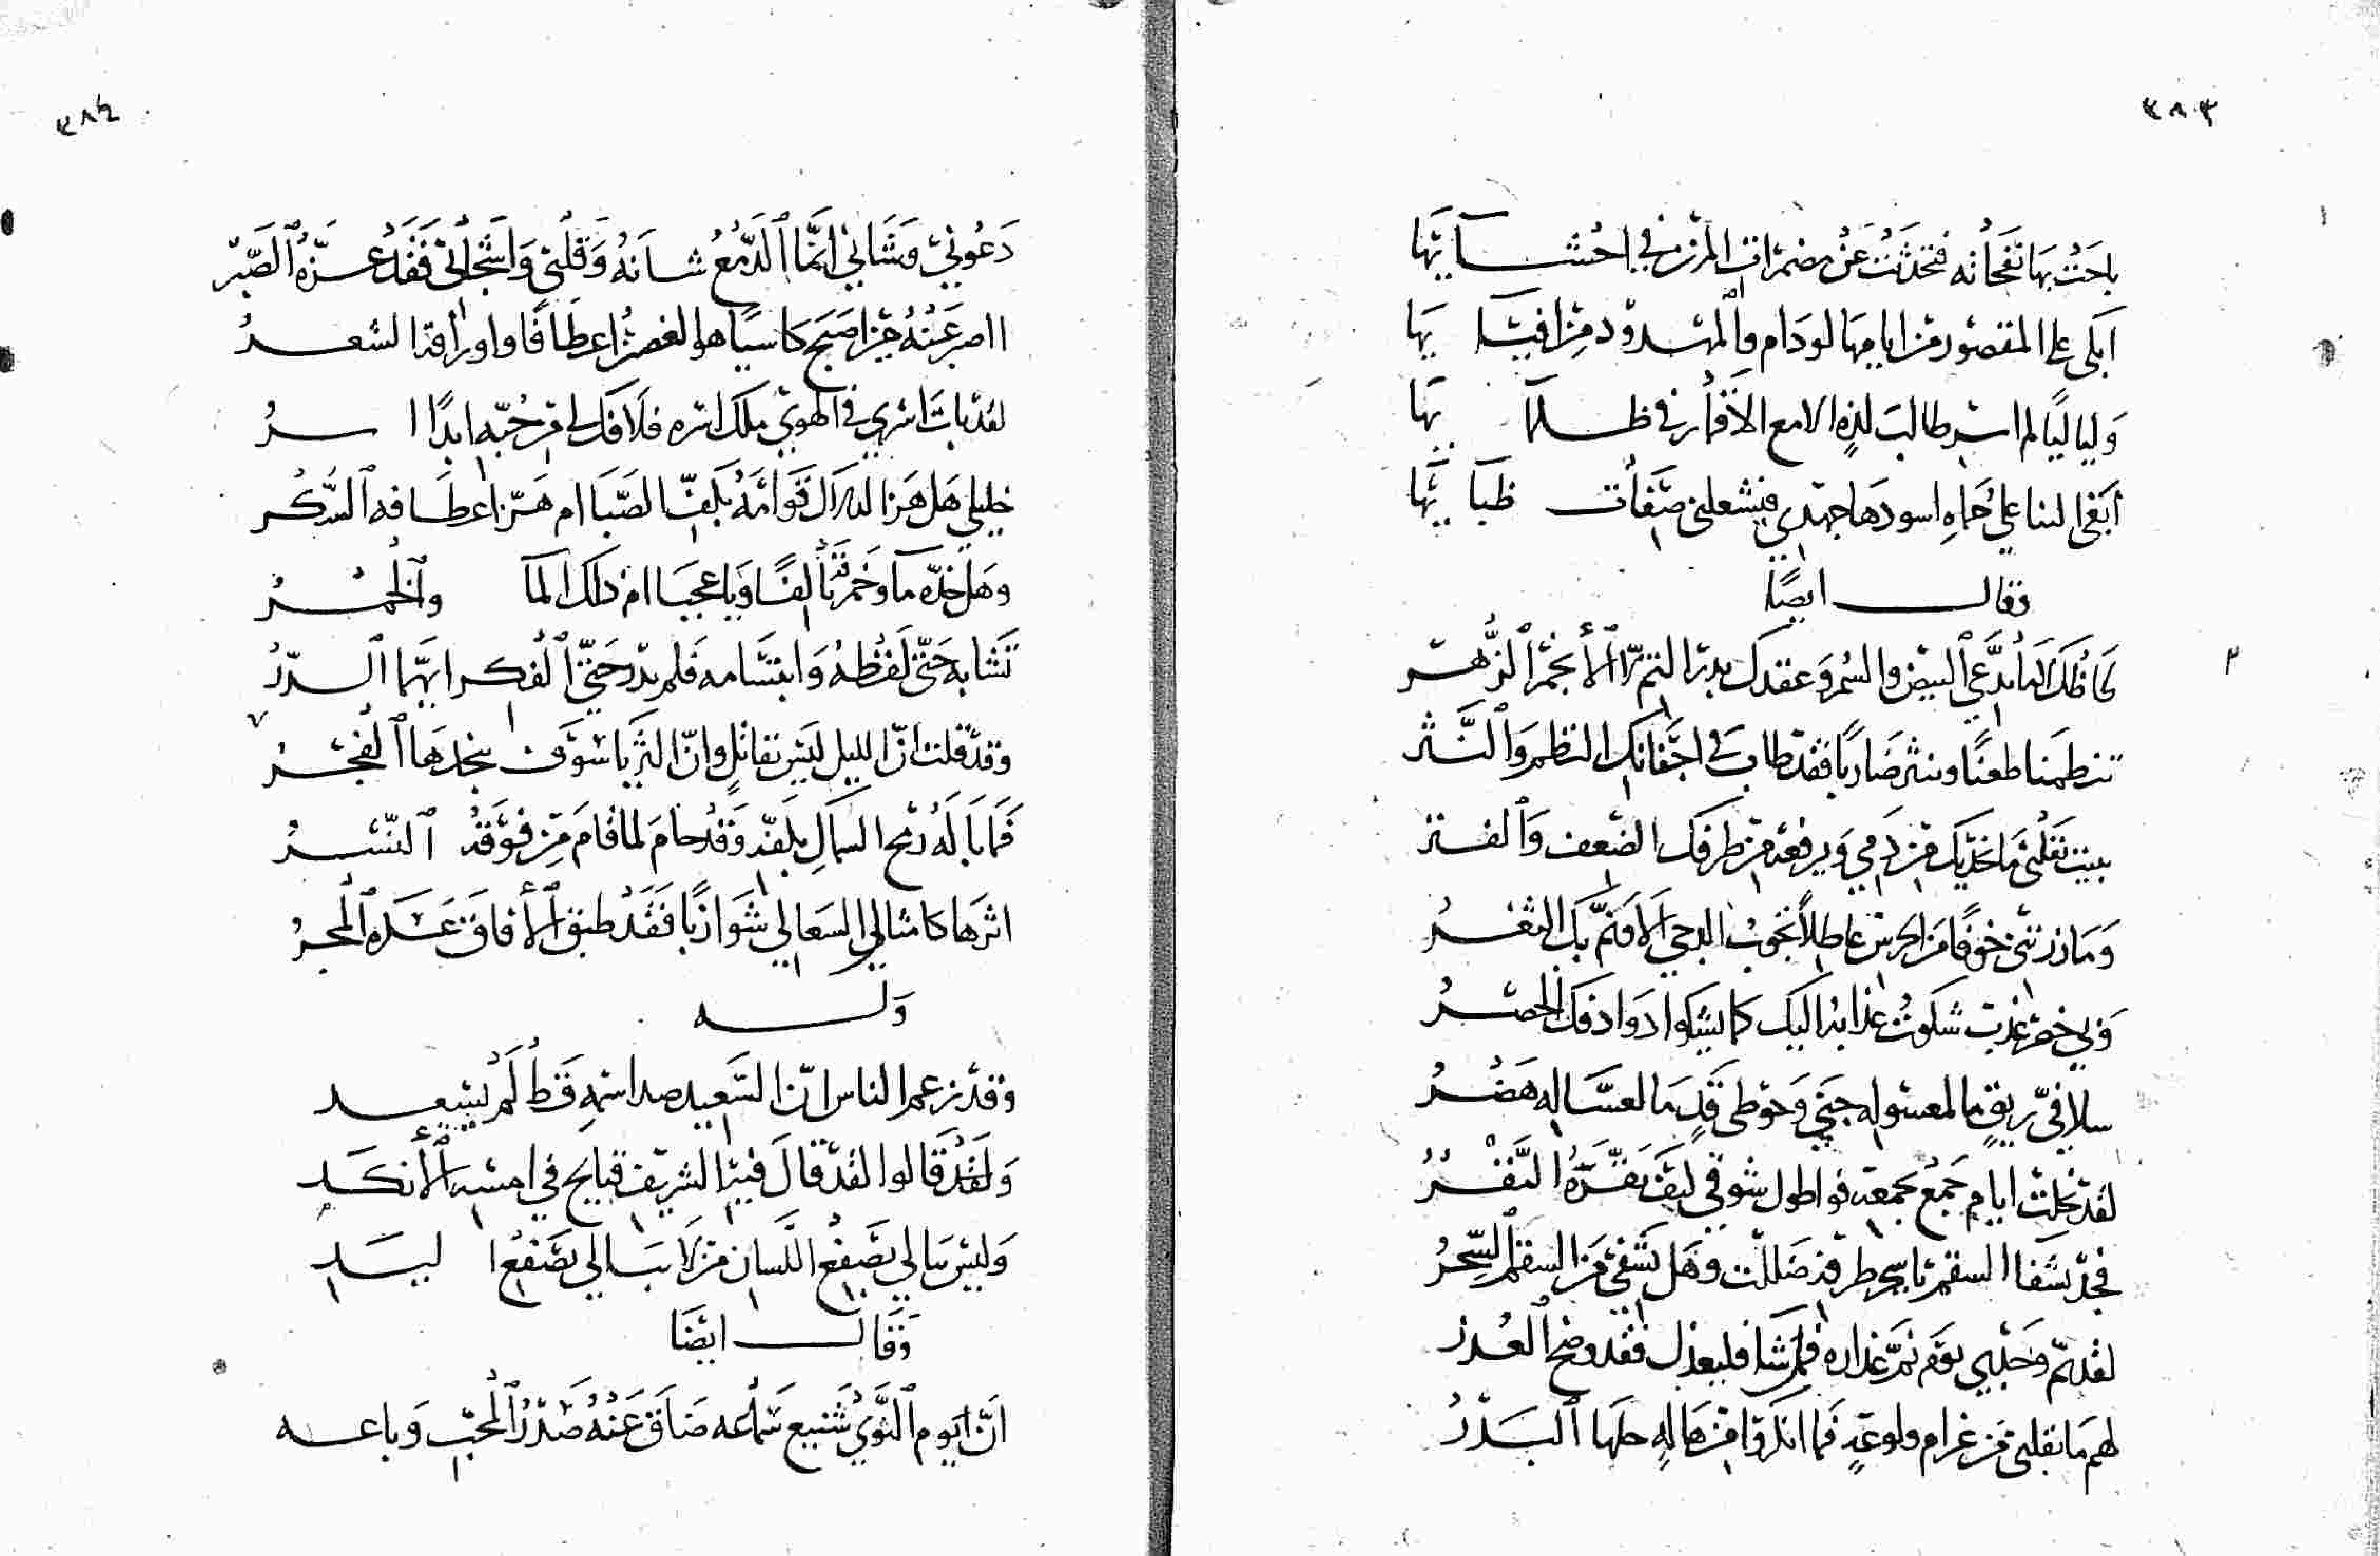 ٣٨٣
باحت بها نفحاته فتحدثت عن مضمرات المزن في احشائها
ابكى على المقصور من ايامها لو دام والممدود من افيائها
وليالياً لم اسر طالب لذة الا مع الاقمار في ظلمائها
ابغى لنا على حماه اسودها جهدي فيشعلني صفات ظبائها
وقال ايضاً
لحاظك ام البيض والسمر وعقدك بدر التم ام الأنجم الزهر
تنظمنا طعناً وتنثر ضارباً فقد طاب في اجفانك النظم والنثر
يبيت بقلبي ما بخديك من دمي ويرفعه من طرفك الضعف والفتر
وما زرتني خوفا من الحرس عاطلاً تجوب الدجى الا ونم بك الثغر
وبي خصر عذب شكوت عذابه اليك كما يشكوا روادفك الخصر
سلافي ريق ما لمعسوله جنى وخوطى قد ما لعساله هصر
لقد بخلت ايام جمع بجمعه فواطول شوقي ليت نفره النفر
فجد بشفا السقم يا سحر طرفه ضللت وهل يشفي من السقم السحر
لقد نم وجدي يوم نم عذاره فمن شا فليعذل فقد وضح العذر
لهم ما بقلبي من غرام ولوعة فما انكروا من هالة حلها البدر
٣٨٤
دعوني وشاني انما الدمع شانه وقلبي واشجاني فقد عزه الصبر
ااصبر عنه حين اصبح كاسياً هو الغصن اعطافا واوراقه الشعر
لقد بات اسري في الهوى ملك اسره فلا فك لي من حبه ابدا اسر
خليلي هل هزا لدلال قوامه بكف الصبا ام هز اعطافه السكر
وهل خده ما وخمر تألفا ويا عجبا ام ذلك الما والخمر
تشابه حتى لفظه وابتسامه فلم يدر حتى الفكر ايهما الدر
وقد قلت ان الليل ليس بقاتل وان الثريا سوف ينجدها الفجر
فما باله رمح السماك بكفه وقد حام لما قام من فوقه النسر
اثرها كامثال السعالي شوازبا فقد طبق الأفاق عسكره المجر
وله
وقد زعم الناس ان السعيد صد اسمه قط لم يسعد
ولقد قالوا لقد قال فيه الشريف قبايح في امسه الأنكد
وليس يبالي بصفع اللسان من لا يبالي بصفع اليد
وقال ايضا
ان يوم النوى شنيع سماعه ضاق عنه صدر المحب وباعه